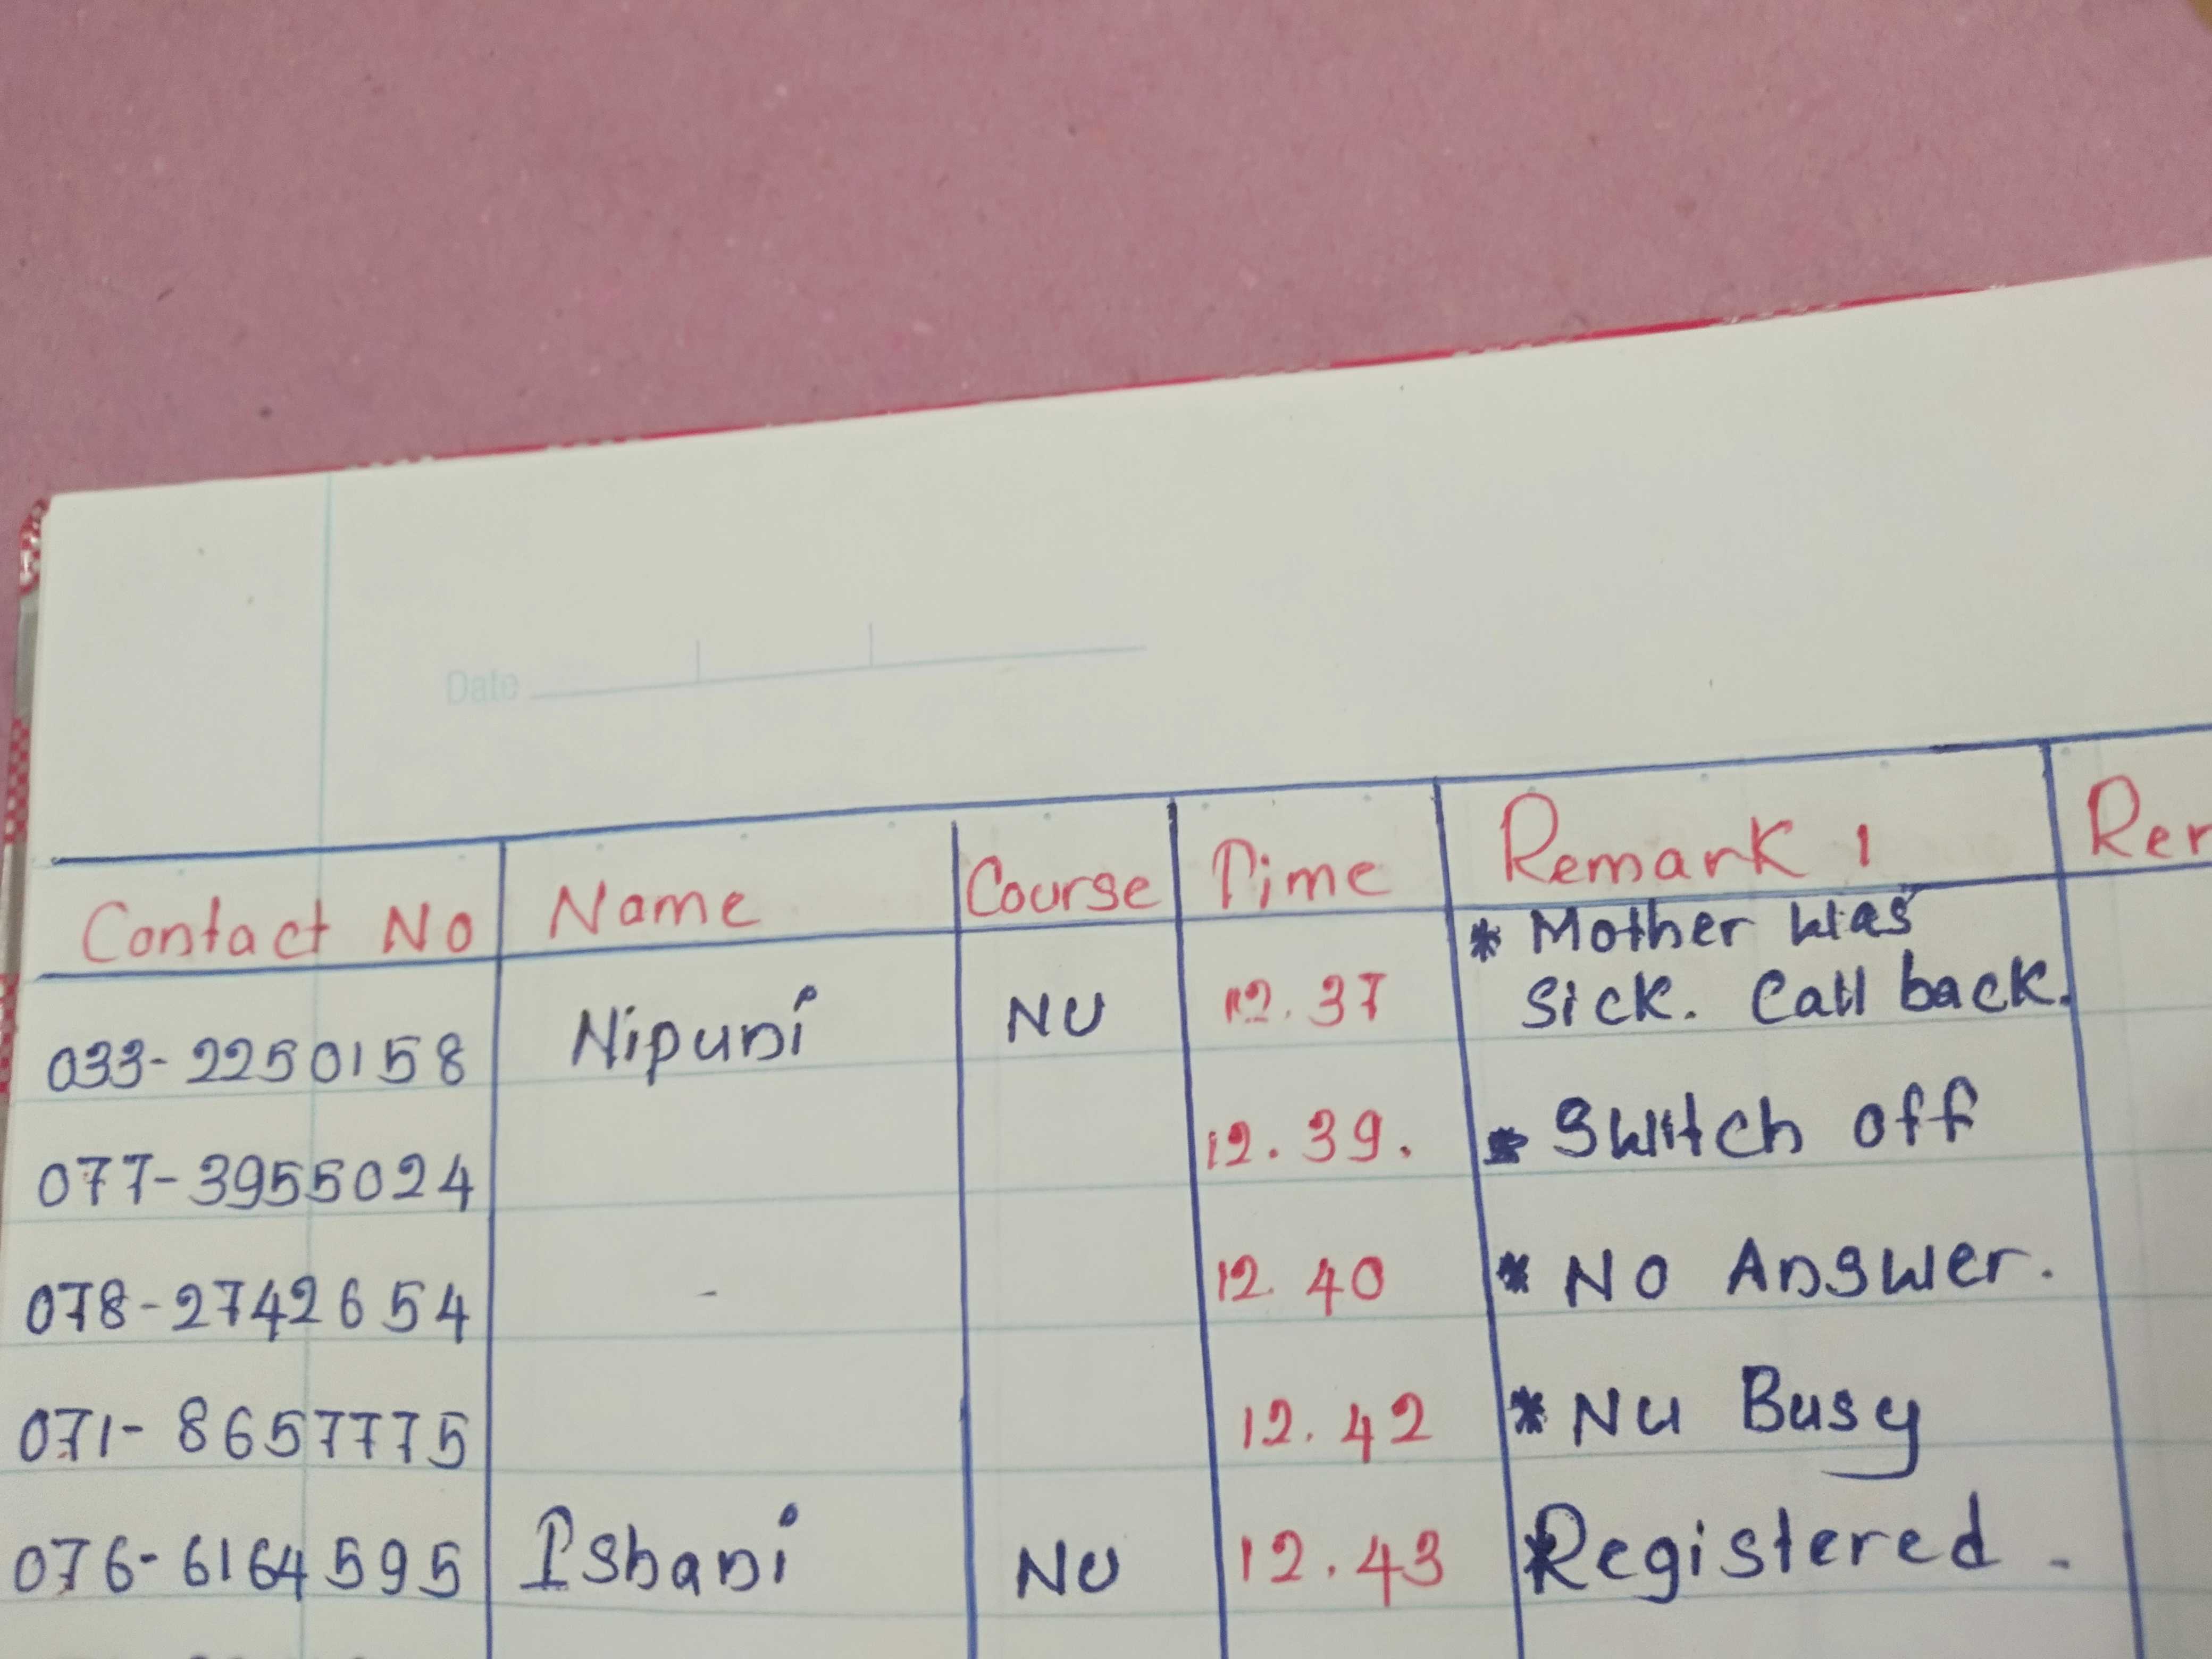 Date
Contact No Name Course Time Remark 1 Rer
* Mother was
033-2250158 Nipuni NU 12.37 Sick. Call back.
077-3955024 12.39. * Switch off
078-2742654 - 12.40 * No Answer.
071-8657775 12.42 * Nu Busy
076-6164595 Ishani NU 12.43 *Registered.